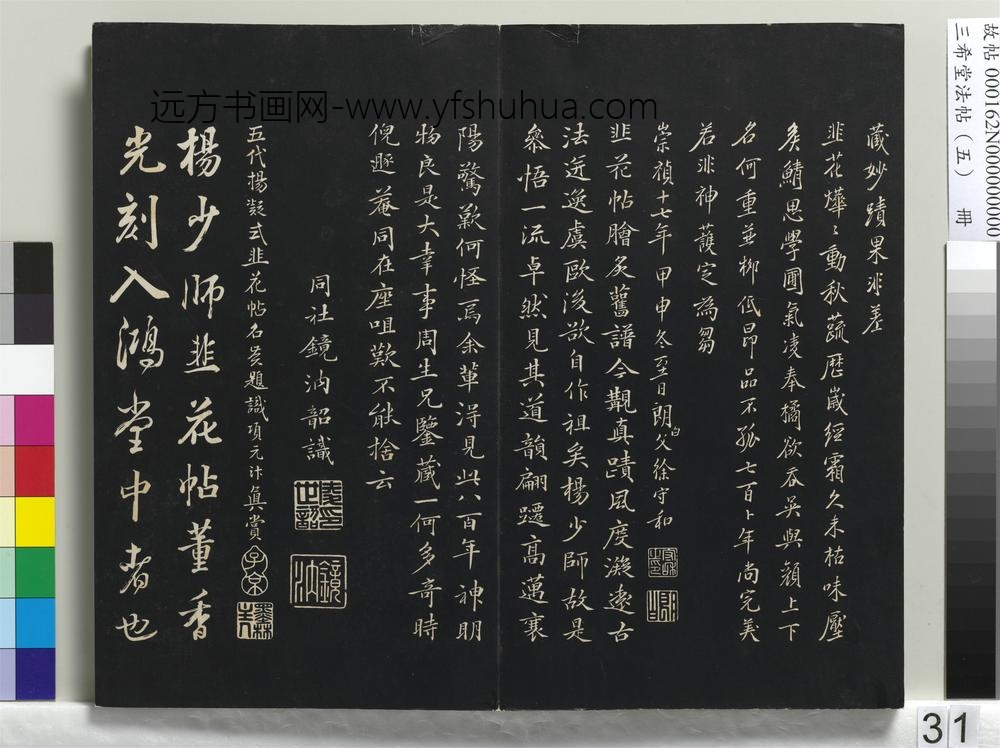 故帖 000162N000000000
三希堂法帖（五） 冊
远方书画网-www.yfshuhua.com
藏妙蹟果非差
韭花燁〻動秋蔬歷歲經霜久未枯味壓
矦鯖思學圃氣凌奉橘欲吞吳與顏上下
名何重並柳低昂品不孤七百卜年尚完美
若非神護定為芻
崇禎十七年甲申冬至日朗白父徐守和
韭花帖膾炙舊譜今觀真蹟風度凝遠古
法迸逸虞歐後欲自作祖矣楊少師故是
叅悟一流卓然見其道韻翩躚高邁襄
陽驚歎何怪焉余輩得見此八百年神明
物良是大幸事周生兄鑒藏一何多奇時
倪遯菴同在座咀歎不能捨云
同社鏡汭韶識
鏡汭
五代楊凝式韭花帖名賢題識項元汴真賞
子京
墨林
楊少師韭花帖董香
光刻入鴻堂中者也
31